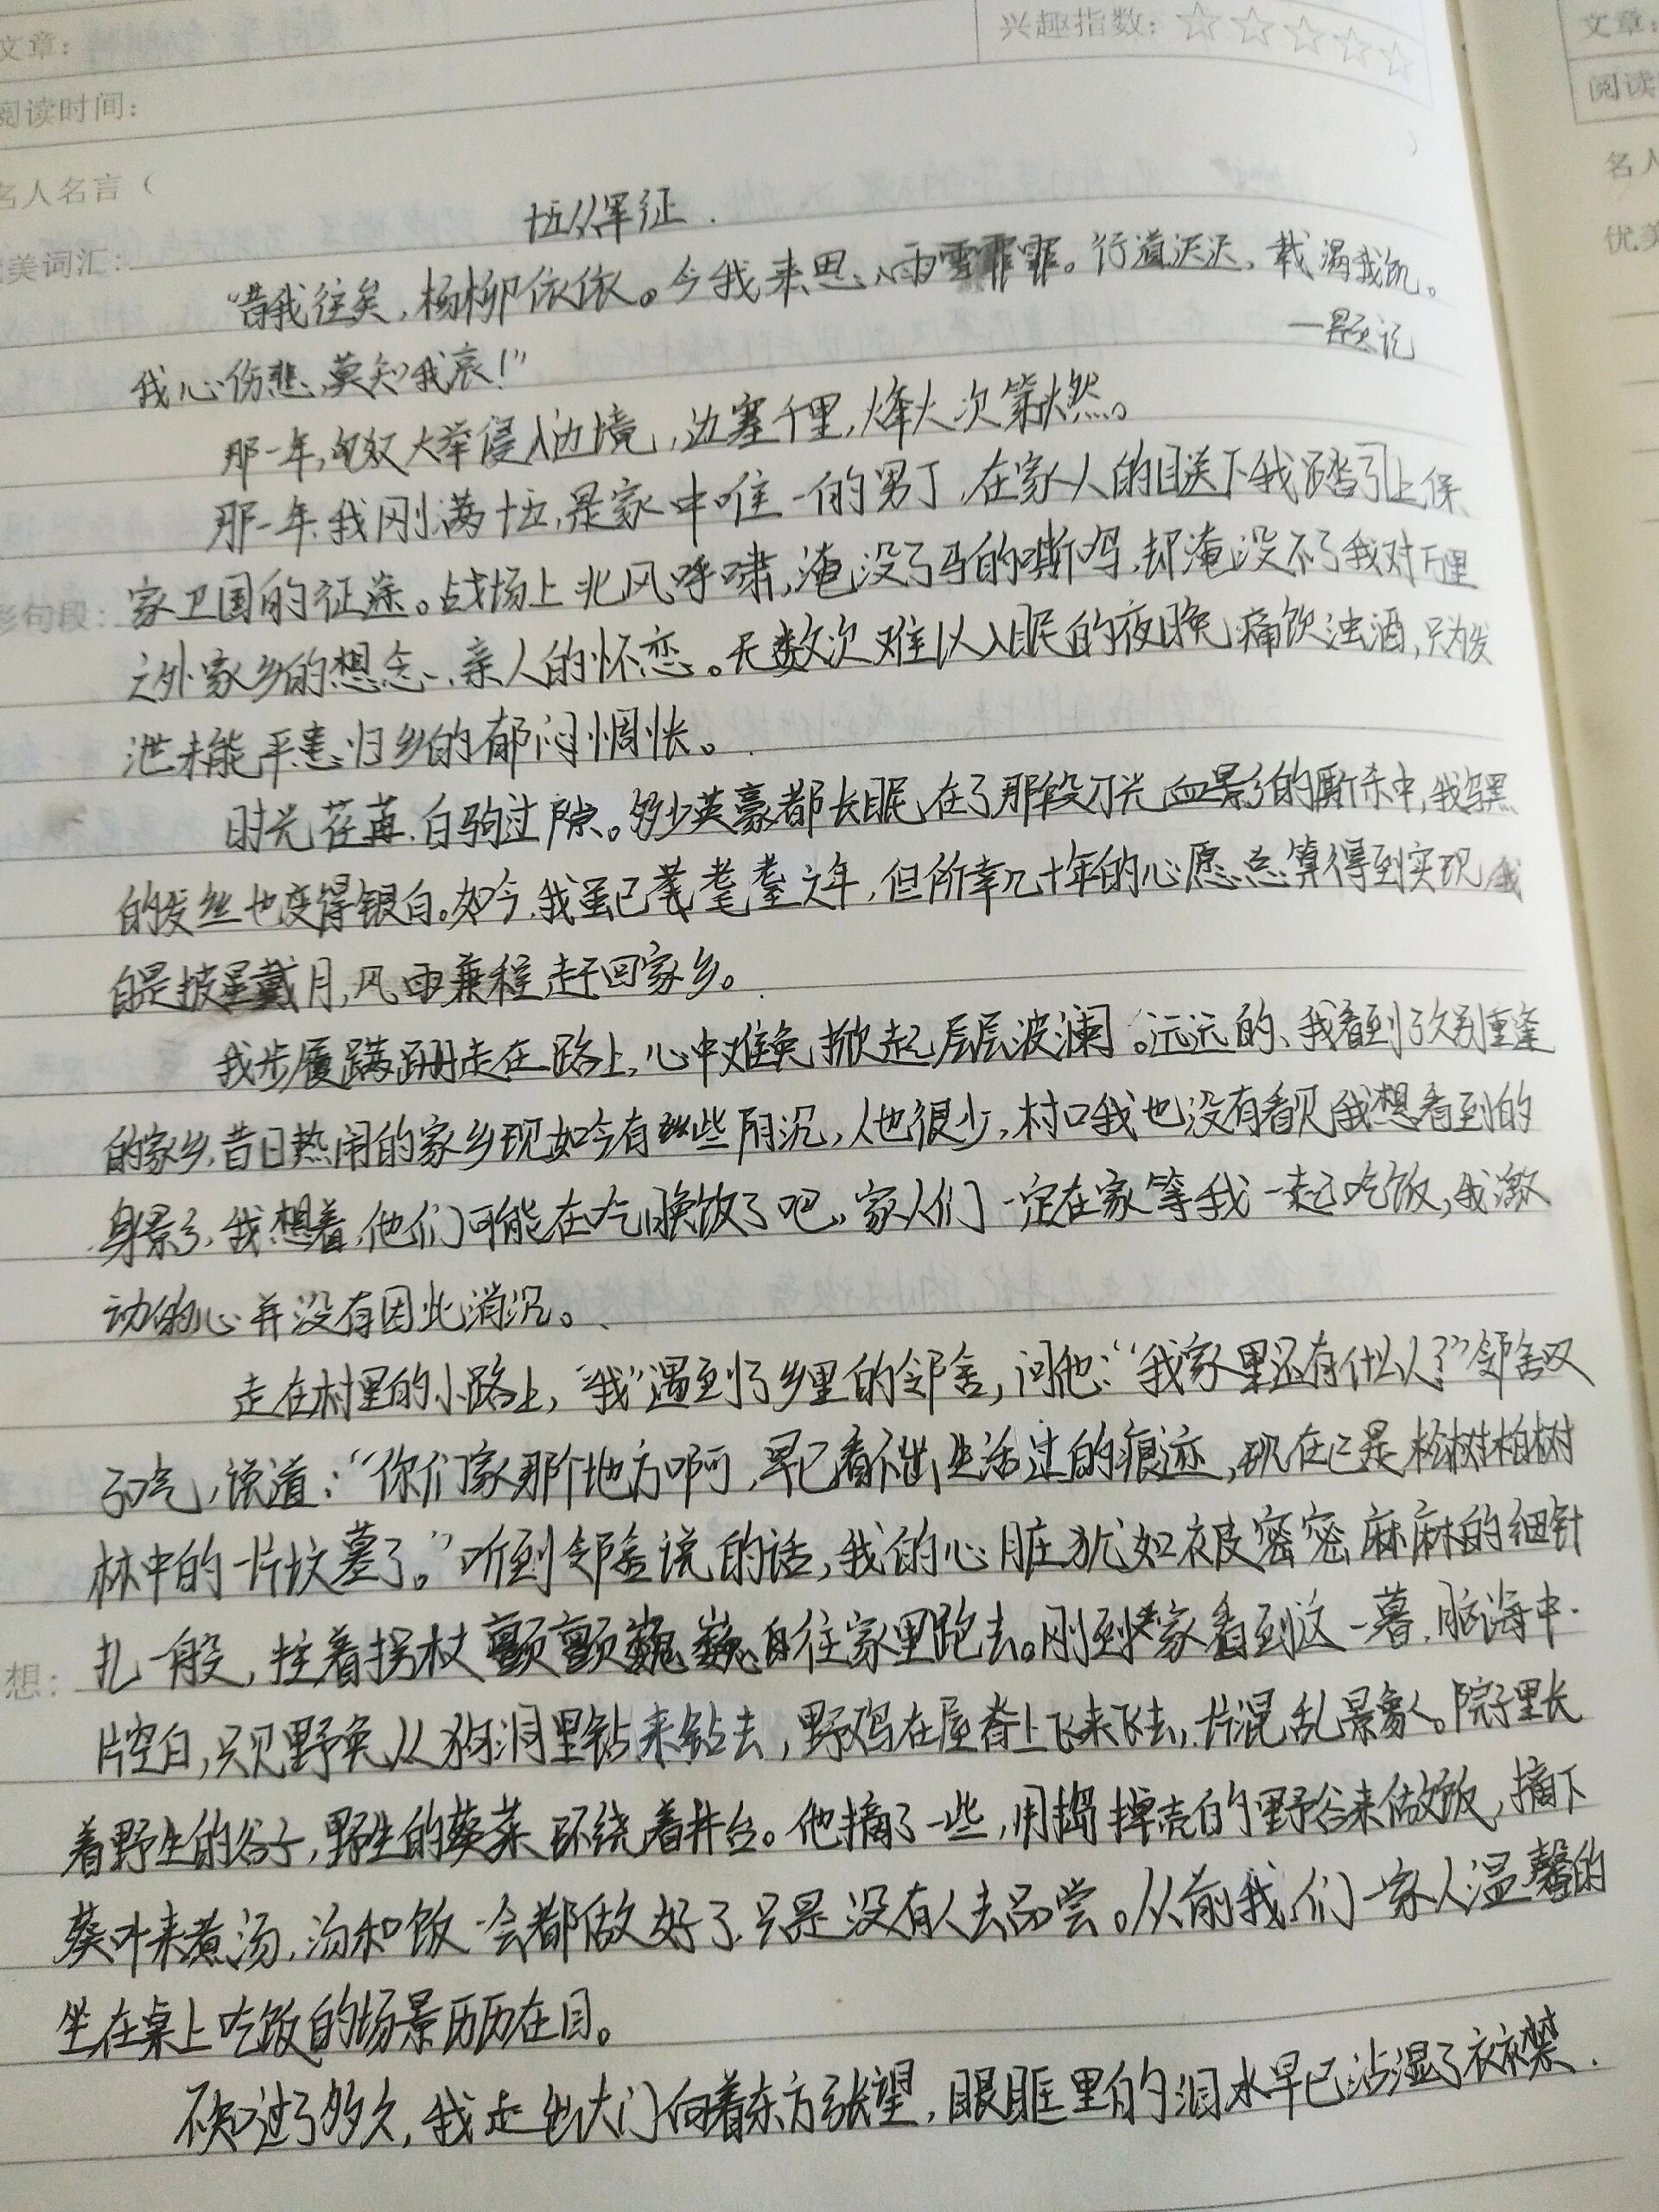 文章：
兴趣指数：☆☆☆☆☆
文章：
阅读时间：
阅读
名人名言（
）
名人
十五从军征
美词汇：
优美
“昔我往矣，杨柳依依。今我来思，雨雪霏霏。行道迟迟，载渴载饥。
我心伤悲，莫知我哀！”
—题记
那一年，匈奴大举侵入边境，边塞千里，烽火次第燃。
那一年，我刚满十五，是家中唯一的男丁，在家人的目送下我踏上保
彩句段：
家卫国的征途。战场上北风呼啸，淹没了马的嘶鸣，却淹没不了我对万里
之外家乡的想念、亲人的怀恋。无数次难以入眠的夜晚，痛饮浊酒，只为发
泄未能平患归乡的郁闷惆怅。
时光荏苒，白驹过隙。多少英豪都长眠在了那段刀光血影的厮杀中，我乌黑
的发丝也变得银白。如今，我虽已耄耋之年，但所幸几十年的心愿总算得到实现，我
自是披星戴月，风雨兼程，赶回家乡。
我步履蹒跚走在路上，心中难免掀起层层波澜。远远的、我看到了久别重逢
的家乡，昔日热闹的家乡现如今有些阴沉，人也很少，村口我也没有看见我想看到的
身影，我想着，他们可能在吃晚饭了吧，家人们一定在家等我一起吃饭，我激
动的心并没有因此消沉。
走在村里的小路上，“我”遇到了乡里的邻舍，问他：“我家里还有什么人？”邻舍叹
了口气，说道：“你们家那个地方啊，早已看不出生活过的痕迹，现在已是松树柏树
林中的一片坟墓了。”听到邻舍说的话，我的心脏犹如被密密麻麻的细针
想：
扎一般，拄着拐杖颤颤巍巍自往家里跑去。刚到家看到这一暮，脑海中一
片空白，只见野兔从狗洞里钻来钻去，野鸡在屋脊上飞来飞去，一片混乱景象。院子里长
着野生的谷子，野生的葵菜环绕着井台。他摘了一些，用捣掉壳的野谷来做饭，摘下
葵叶来煮汤，汤和饭一会都做好了，只是没有人去品尝。从前我们一家人温馨的
坐在桌上吃饭的场景历历在目。
不知过了多久，我走出大门向着东方张望，眼眶里的泪水早已沾湿了衣襟.